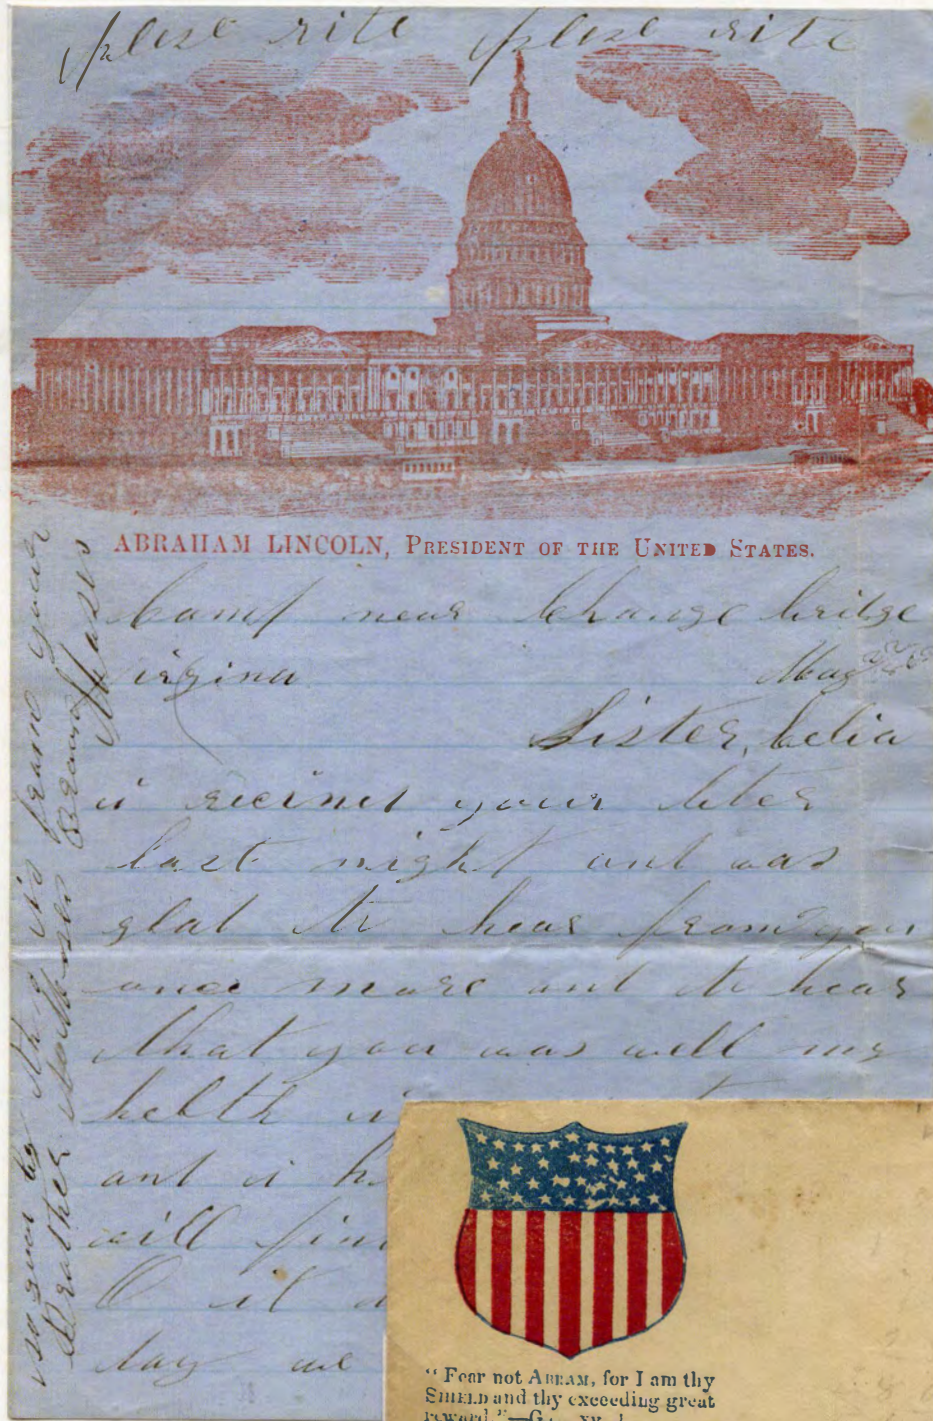 plese rite plese rite
ABRAHAM LINCOLN, PRESIDENT OF THE UNITED STATES.
Camp near Change bridge
Virgina May 22
Sister, Celia
i
your leter
last night ant was
glat to hear from you
once more ant to hear
that you was well my
helth
ant i
will
it
day we
so good by this is frome your
Brother
Moses
"Fear not ABRAM, for I am thy
SHIELD and thy exceeding great
reward."—Gen. xv. 1